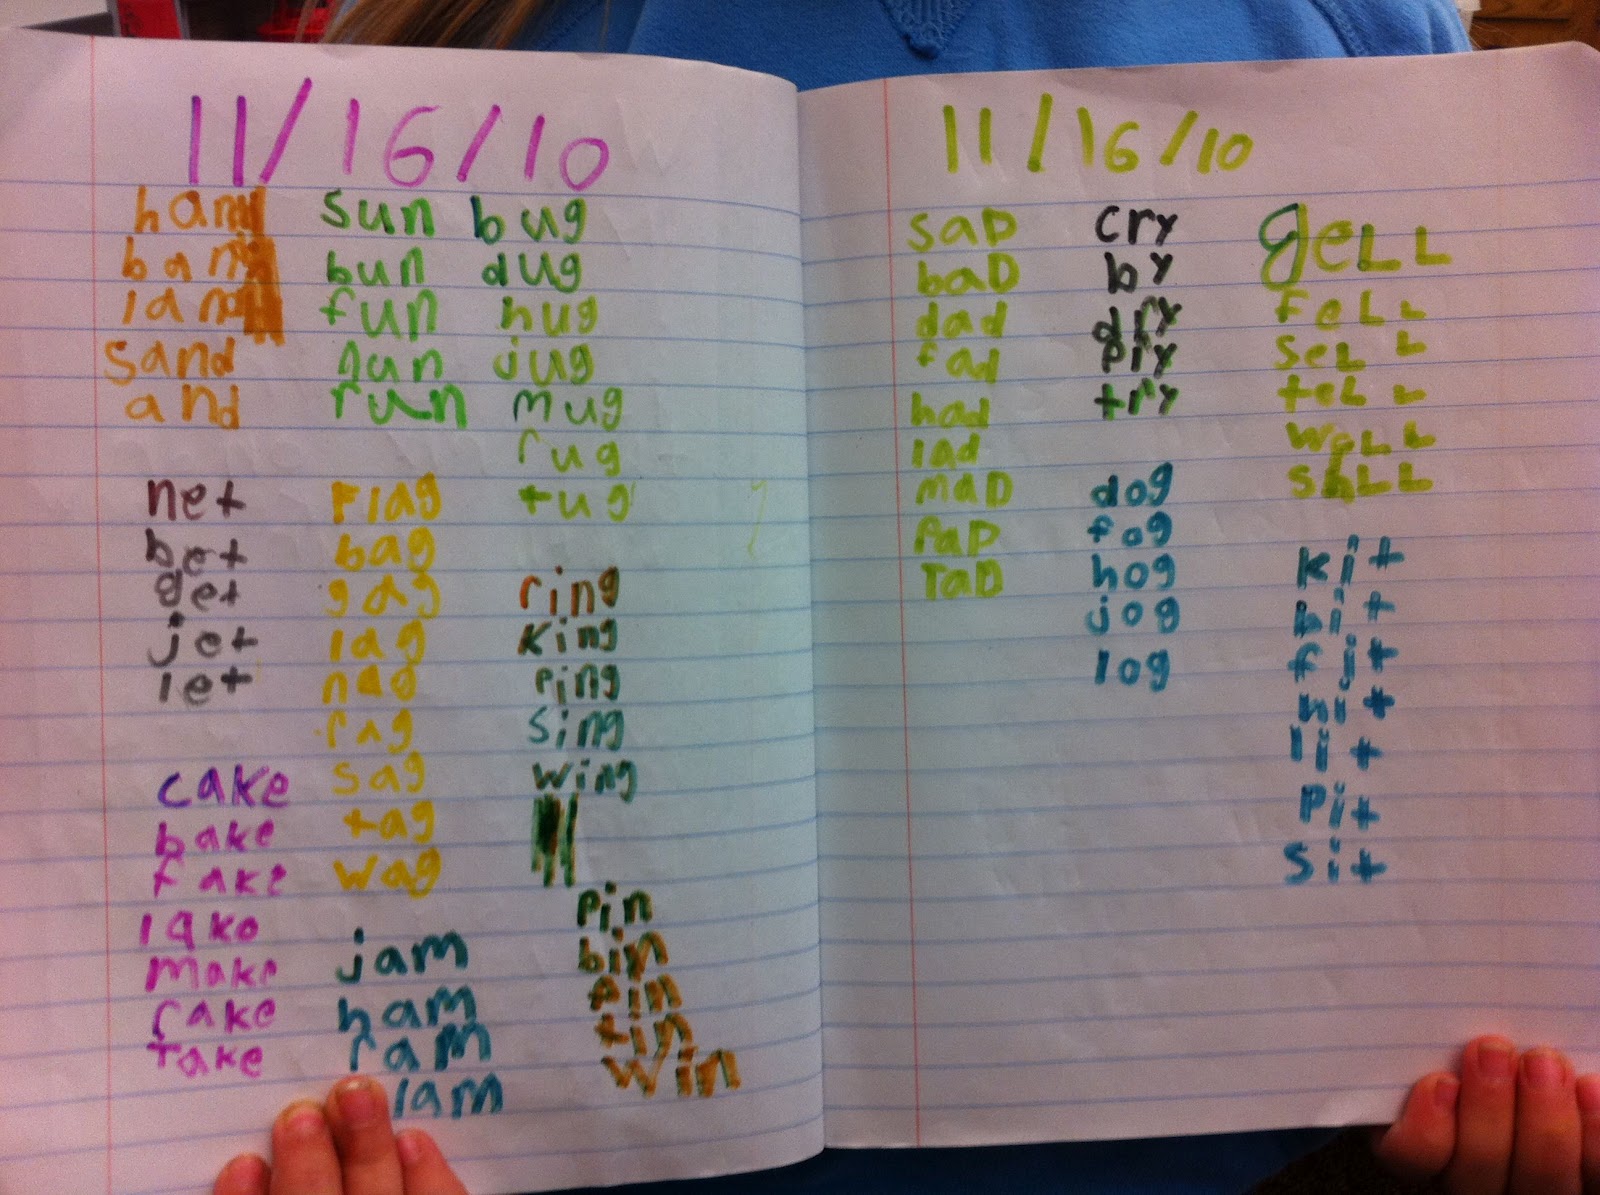 11/16/10
hand
band
land
sand
and
sun
bun
fun
gun
run
bug
dug
hug
jug
mug
rug
tug
net
bet
get
jet
let
flag
bag
gag
lag
nag
rag
sag
tag
wag
ring
King
ping
sing
wing
cake
bake
fake
lake
make
rake
Take
jam
ham
ram
lam
pin
bin
fin
tin
win
11/16/10
saD
baD
dad
fad
had
lad
maD
raD
cry
by
dry
pry
try
dog
fog
hog
jog
log
geLL
feLL
seLL
teLL
weLL
kit
bit
fit
hit
lit
pit
sit